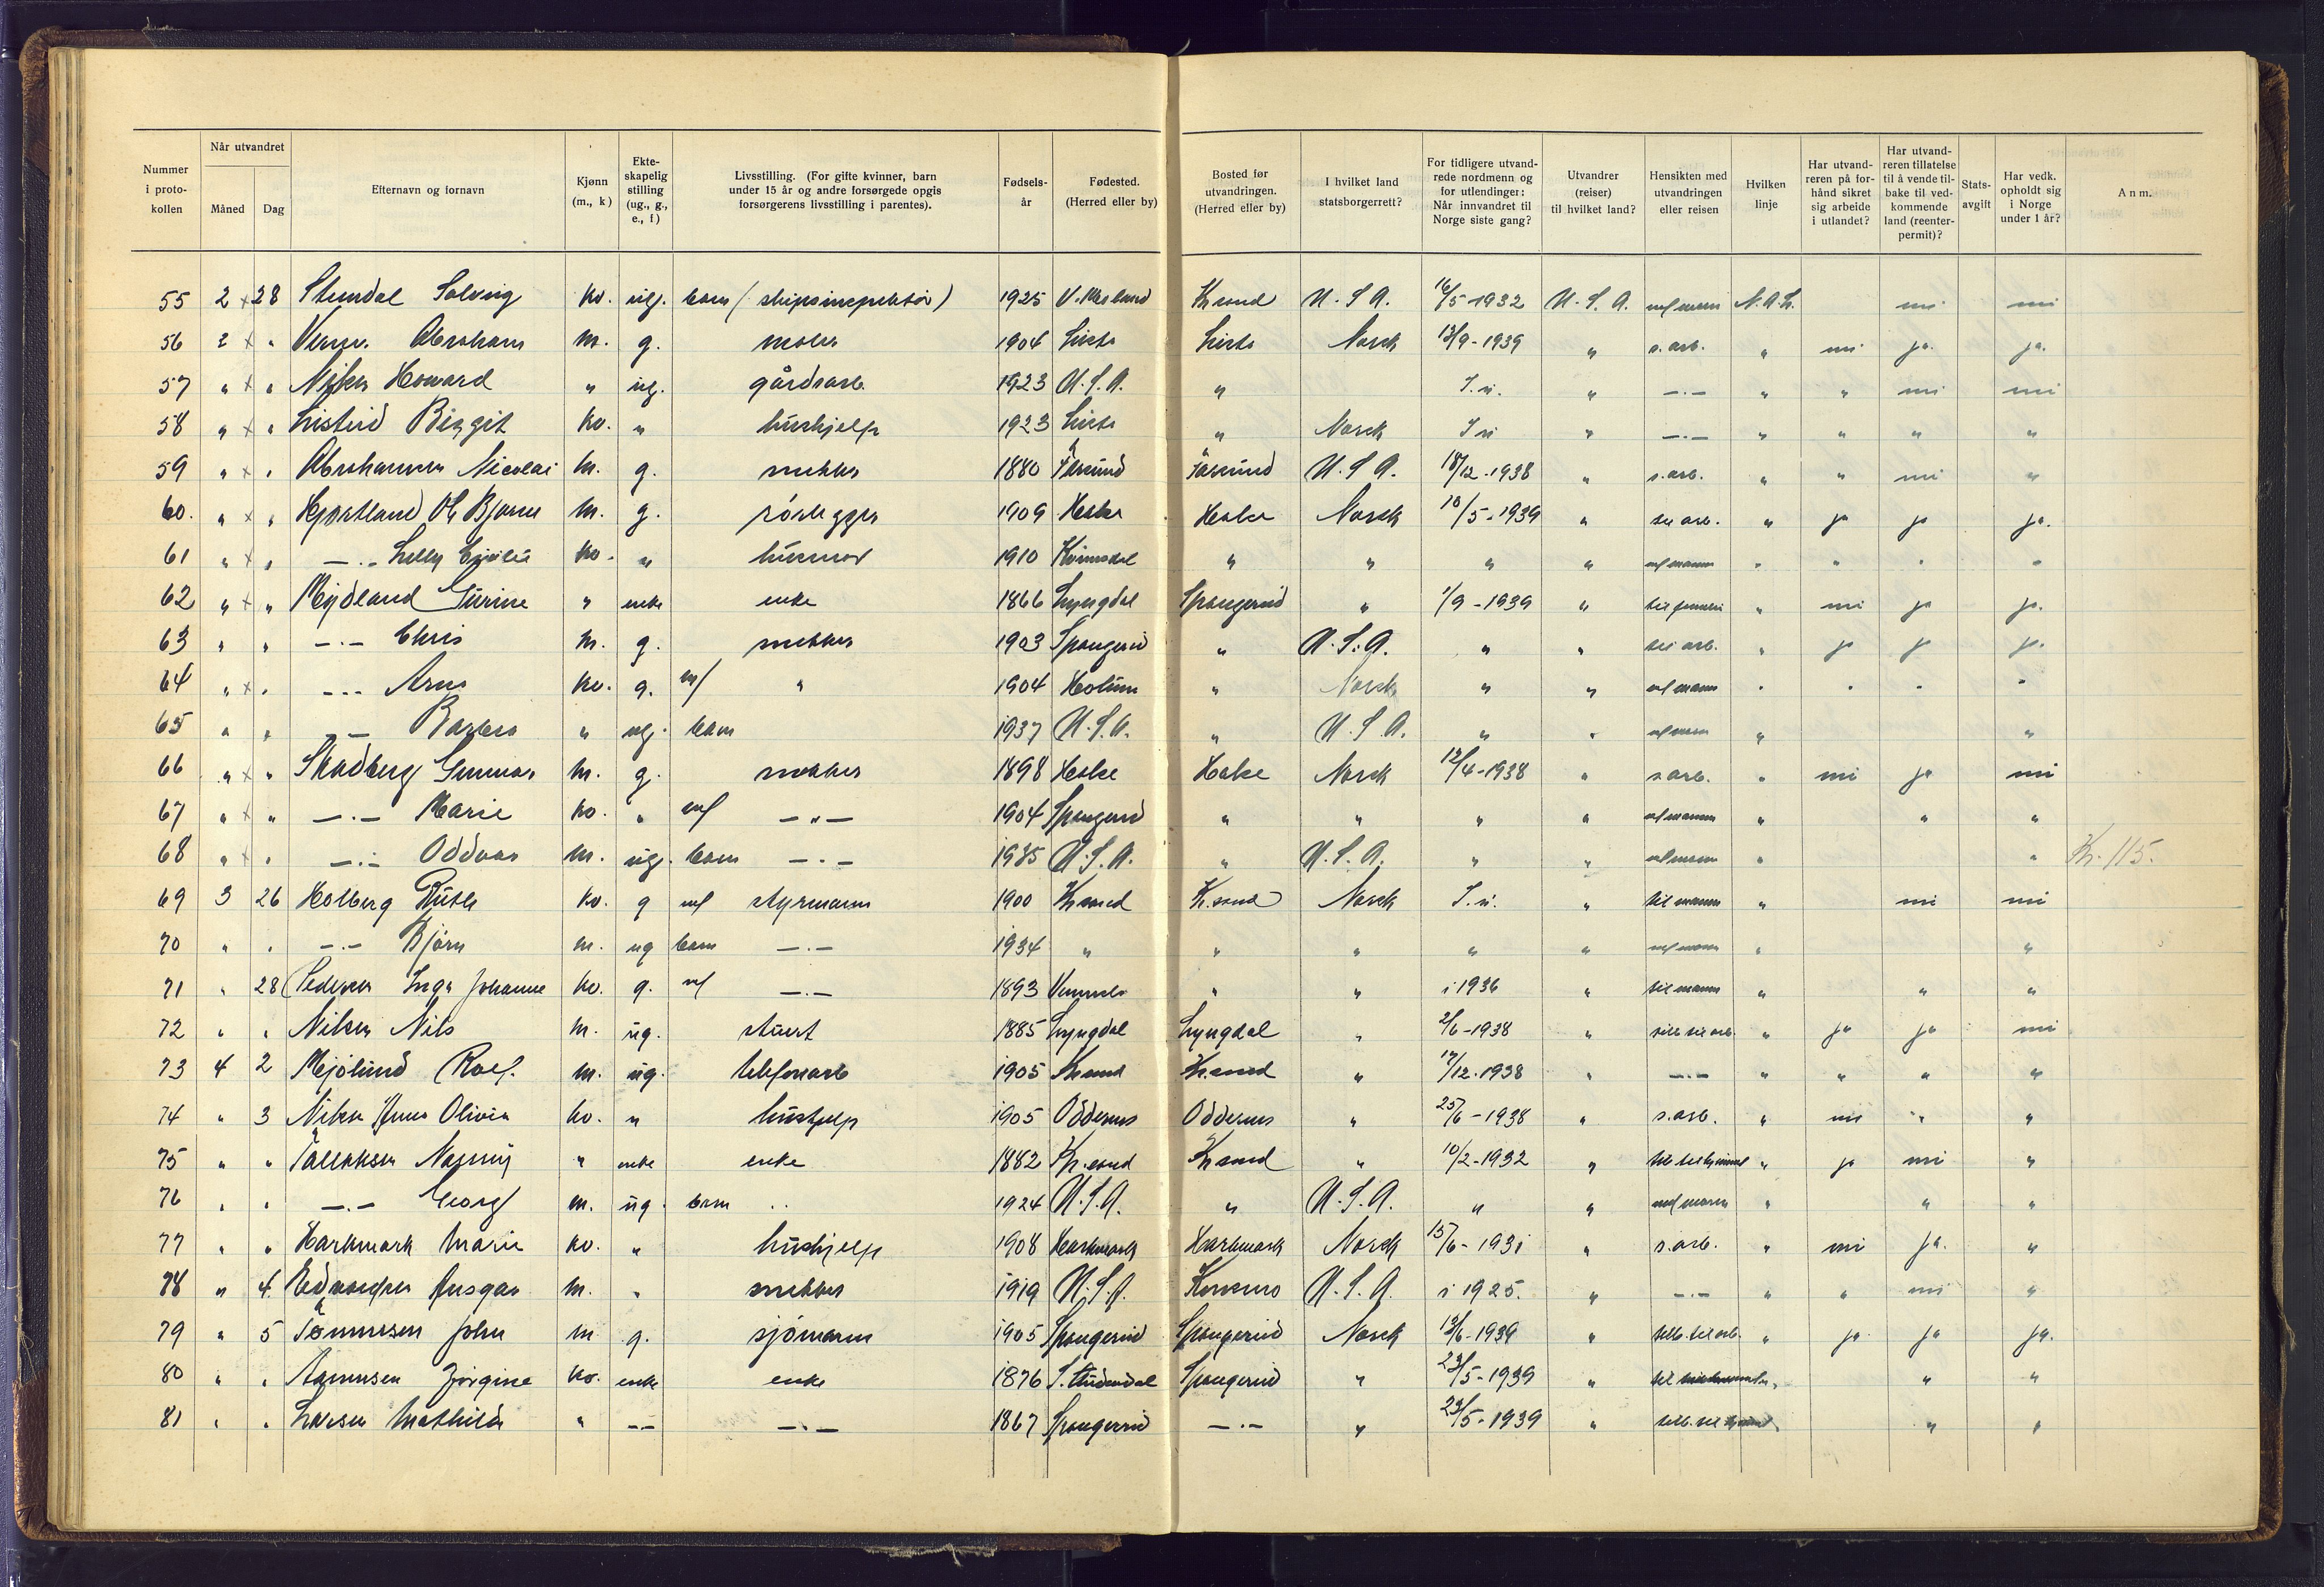 Nummer i protokollen | Når utvandret Måned | Dag | Efternavn og fornavn | Kjønn (m., k) | Ekteskapelig stilling (ug., g., e., f) | Livsstilling. (For gifte kvinner, barn under 15 år og andre forsørgede opgis forsørgerens livsstilling i parentes). | Fødselsår | Fødested. (Herred eller by) | Bosted før utvandringen. (Herred eller by) | I hvilket land statsborgerrett? | For tidligere utvandrede nordmenn og for utlendinger: Når innvandret til Norge siste gang? | Utvandrer (reiser) til hvilket land? | Hensikten med utvandringen eller reisen | Hvilken linje | Har utvandreren på forhånd sikret sig arbeide i utlandet? | Har utvandreren tillatelse til å vende tilbake til vedkommende land (reenterpermit)? | Statsavgift | Har vedk. opholdt sig i Norge under 1 år? | Anm.
55 2 x 28 Solveig kv. ug. barn (skipsinspektør) 1925 Kr.sand U.S.A. 16/5-1932 U.S.A. N.A.L. nei nei
56 2 x " Abraham m. g. maler 1904 Lista Lista Norsk 13/9-1939 " s.arb. " nei ja. ja.
57 " x " Howard " ug. gårdsarb. 1923 U.S.A. " " —.— " " nei nei
58 " x " Listeid Birgit kv. " hushjelp 1923 Lista " Norsk " —.— " " " "
59 " x " Abrahamsen Nicolai m. g. snekker 1880 Farsund Farsund U.S.A. 18/12-1938 " s.arb. " " nei "
60. " x " Bjarne m. g. rørlegger 1909 Norsk 10/5-1939 " til arb. " ja ja ja.
61 " x " —.— kv. " husmor 1910 " " " " m/mann " " " "
62 " x " Mydland Gurine " enke enke 1866 Lyngdal Spangereid " 1/9-1939 " " nei ja ja.
63 " " —.— Chris m. g. snekker 1903 Spangereid " U.S.A. " " til arb. " ja ja ja.
64 " x " —.— kv. g. m/ " 1904 Holum " Norsk " " m/mann " " " "
65 " " —.— Barbara " ug. barn 1937 U.S.A. " U.S.A. " " " "
66 " x " Skadberg Gunnar m. g. snekker 1898 Norsk 12/4-1938 " s.arb. " nei ja nei
67 " x " —.— Marie kv. " m/ —"— 1904 Spangereid " " " " m/mann " " "
68 " x " —.— Oddvar m. ug. barn —.— 1935 U.S.A. " U.S.A. " " " " Kr. 115.
69 3 26 Holberg Ruth kv. g m/ styrmann 1900 Kr.sand Kr.sand Norsk " til mann " nei nei
70 " " —.— Bjørn m. ug barn —.— 1934 " " " " " " "
71 " 28 Pedersen Inga Johanne kv. g. m/ —.— 1893 Vennesla " " i 1936 " til mann " " "
72 " " Nilsen Nils m. ug. stuert 1885 Lyngdal Lyngdal " 2/6-1938 " tilb. til arb. " ja ja nei
73 4 2 m. ug. telefonarb 1905 Kr.sand Kr.sand " 17/12-1938 " —.— " " " "
74 " 3 Olivia kv. " hushjelp 1905 Oddernes Oddernes " 25/6-1938 " s.arb. " nei " "
75 " " Tallaksen " enke enke 1882 Kr.sand Kr.sand " 10/2-1932 " " ja nei "
76 " " —.— Georg m. ug. barn " 1924 U.S.A. " U.S.A. " " " " "
77 " " Harkmark Marie kv. " hushjelp 1908 Harkmark Harkmark Norsk 15/6-1931 " s.arb. " nei ja. "
78 " 4 Ansgar m. " snekker 1919 U.S.A. U.S.A. i 1925. " —.— " " nei "
79 " 5 Tønnesen John m g. sjømann 1905 Spangereid Spangereid Norsk 13/6-1939 " tilb. til arb. " ja ja ja.
80 " " Jørgine kv. enke enke 1876 Spangereid " 23/5-1939 " til " "
81 " " Larsen Mathilde " —.— —.— 1867 Spangereid —.— " 23/5-1939 " " "